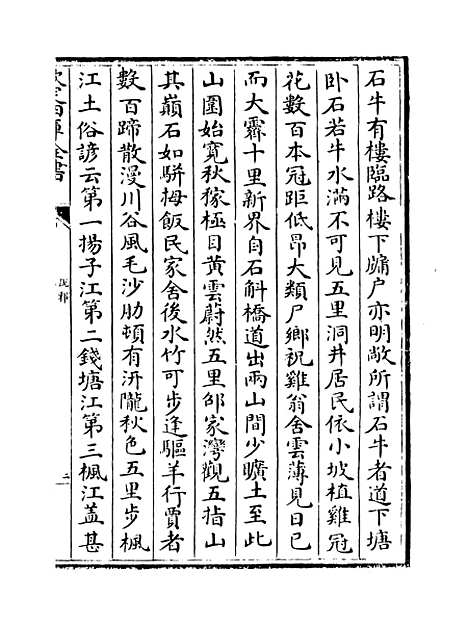 石牛有樓臨路樓下牖户亦明敞所謂石牛者道下塘
卧石若牛水滿不可見五里洞井居民依小坡植雞冠
花數百本冠距低昂大類尸鄉祝雞翁舍雲薄見日已
而大霽十里新界自石斛橋道出兩山間少曠土至此
山圍始寛秋稼極目黄雲蔚然五里邰家灣觀五指山
其巔石如駢拇飯民家舍後水竹可步逢驅羊行賈者
數百蹄散漫川谷風毛沙肋頓有汧隴秋色五里步楓
江土俗諺云第一揚子江第二錢塘江第三楓江蓋甚
欽定四庫全書